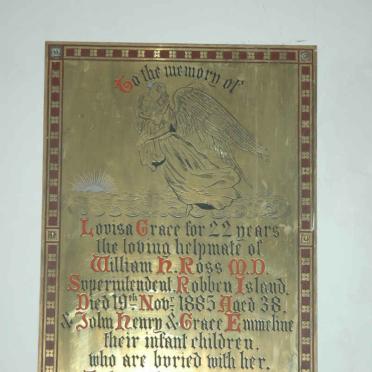 To the memory of
Lovisa Grace for 22 years
the loving helpmate of
William H. Ross M.D.
Superintendent, Robben Island.
Died 19th Novr. 1885 Aged 38.
& John Henry & Grace Emmeline
their infant children,
who are buried with her.